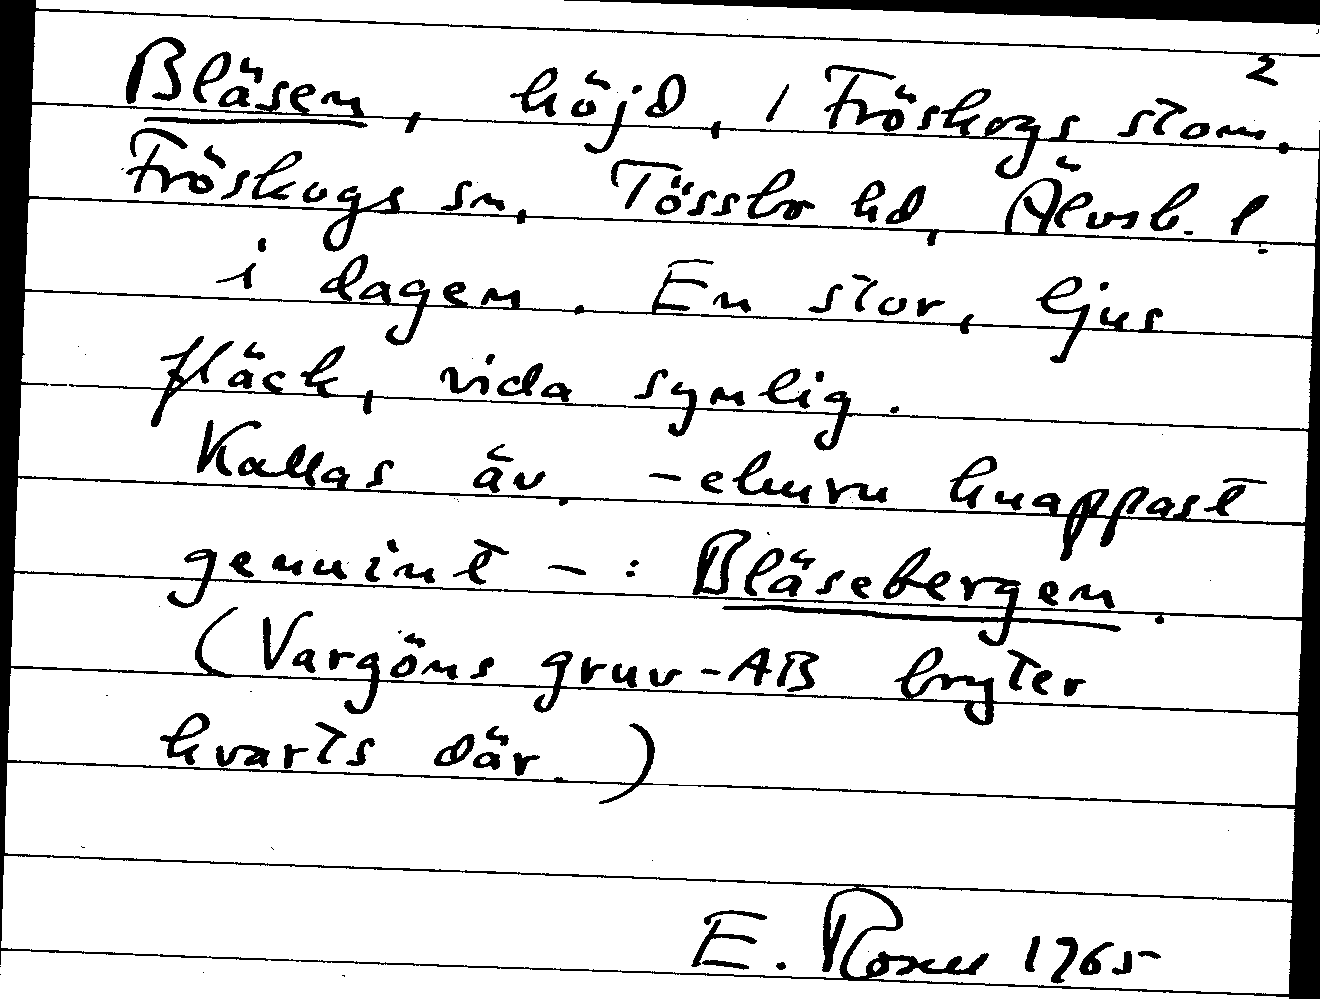 2
Bläsen, höjd, / Fröskogs stom.
Fröskogs sn, Tössbo hd, Älvsb. l.
i dagen. En stor, ljus
fläck, vida synlig.
Kallas äv. - ehuru knappast
genuint - : Bläsebergen.
(Vargöns gruv-AB bryter
kvarts där.)
E. 1965